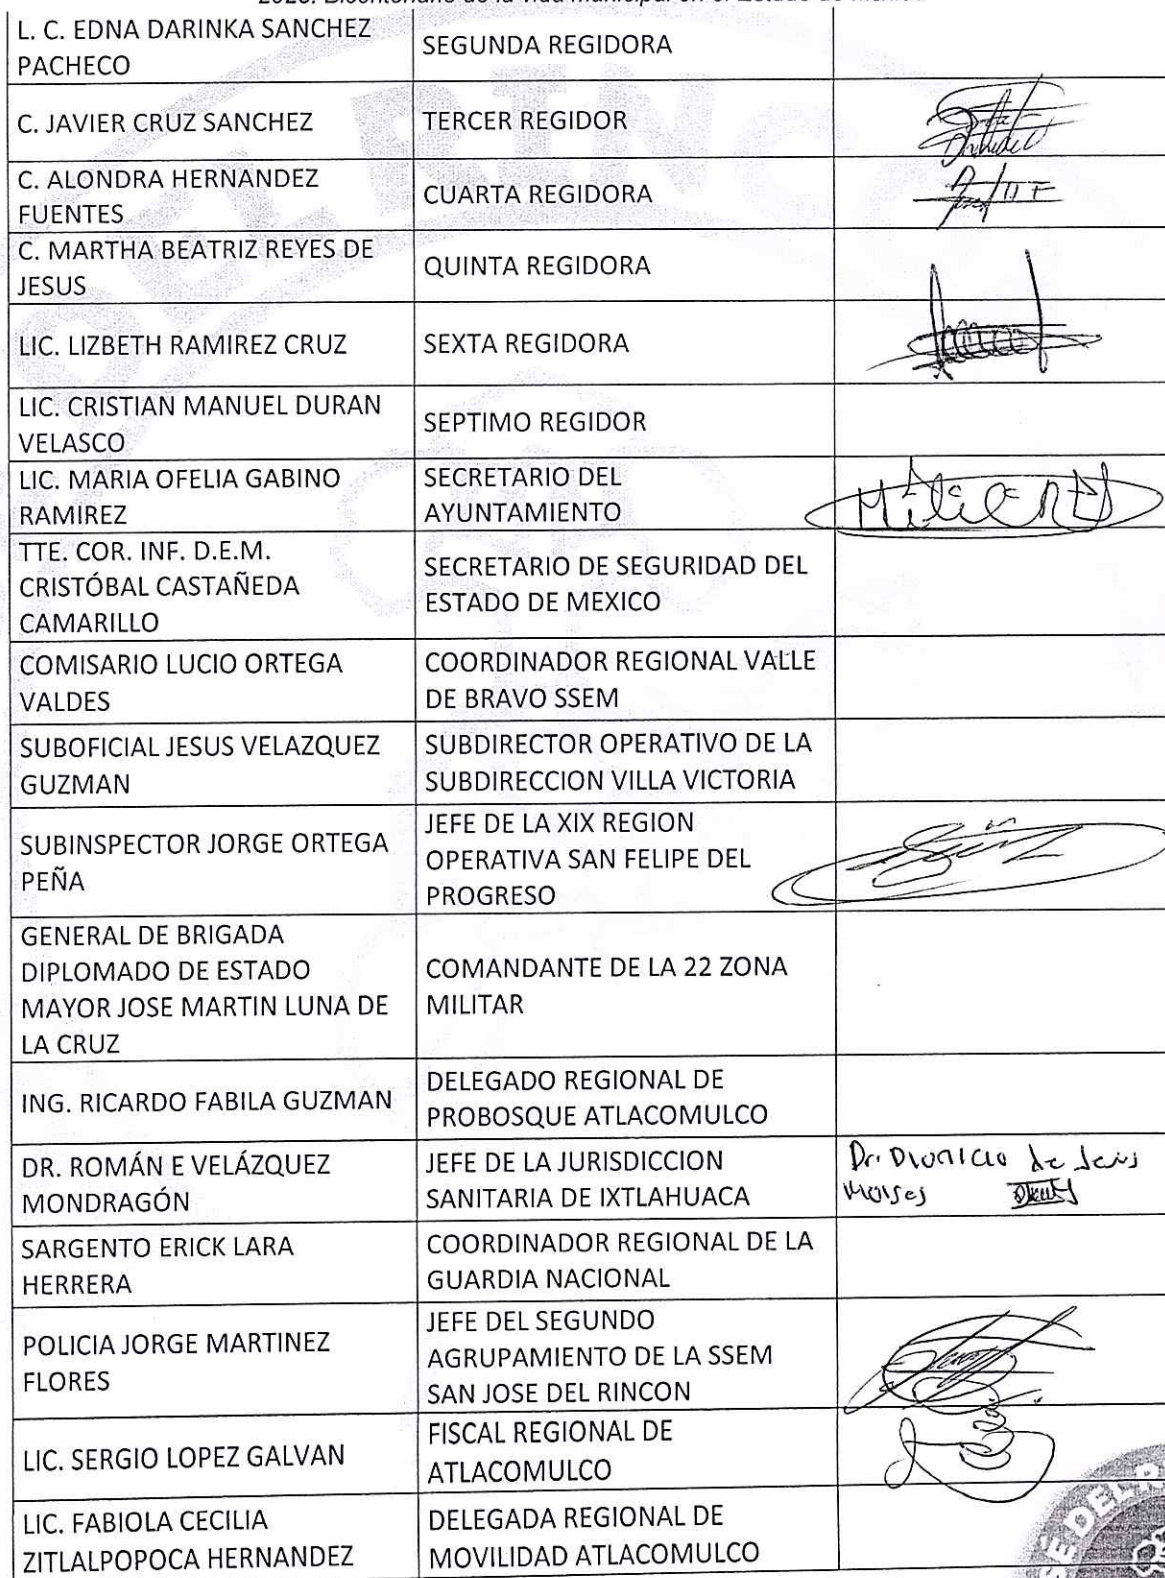 L. C. EDNA DARINKA SANCHEZ
PACHECO
SEGUNDA REGIDORA
C. JAVIER CRUZ SANCHEZ
TERCER REGIDOR
C. ALONDRA HERNANDEZ
FUENTES
CUARTA REGIDORA
C. MARTHA BEATRIZ REYES DE
JESUS
QUINTA REGIDORA
LIC. LIZBETH RAMIREZ CRUZ
SEXTA REGIDORA
LIC. CRISTIAN MANUEL DURAN
VELASCO
SEPTIMO REGIDOR
LIC. MARIA OFELIA GABINO
RAMIREZ
SECRETARIO DEL
AYUNTAMIENTO
TTE. COR. INF. D.E.M.
CRISTÓBAL CASTAÑEDA
CAMARILLO
SECRETARIO DE SEGURIDAD DEL
ESTADO DE MEXICO
COMISARIO LUCIO ORTEGA
VALDES
COORDINADOR REGIONAL VALLE
DE BRAVO SSEM
SUBOFICIAL JESUS VELAZQUEZ
GUZMAN
SUBDIRECTOR OPERATIVO DE LA
SUBDIRECCION VILLA VICTORIA
SUBINSPECTOR JORGE ORTEGA
PEÑA
JEFE DE LA XIX REGION
OPERATIVA SAN FELIPE DEL
PROGRESO
GENERAL DE BRIGADA
DIPLOMADO DE ESTADO
MAYOR JOSE MARTIN LUNA DE
LA CRUZ
COMANDANTE DE LA 22 ZONA
MILITAR
ING. RICARDO FABILA GUZMAN
DELEGADO REGIONAL DE
PROBOSQUE ATLACOMULCO
DR. ROMÁN E VELÁZQUEZ
MONDRAGÓN
JEFE DE LA JURISDICCION
SANITARIA DE IXTLAHUACA
Dr. Dionicio de Jesus
Moises
SARGENTO ERICK LARA
HERRERA
COORDINADOR REGIONAL DE LA
GUARDIA NACIONAL
POLICIA JORGE MARTINEZ
FLORES
JEFE DEL SEGUNDO
AGRUPAMIENTO DE LA SSEM
SAN JOSE DEL RINCON
LIC. SERGIO LOPEZ GALVAN
FISCAL REGIONAL DE
ATLACOMULCO
LIC. FABIOLA CECILIA
ZITLALPOPOCA HERNANDEZ
DELEGADA REGIONAL DE
MOVILIDAD ATLACOMULCO